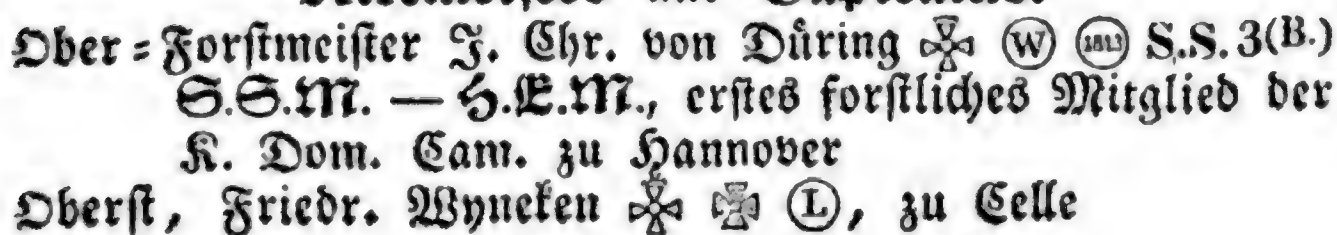 Ober-Forstmeister J. Chr. von Düring ✠ Ⓦ (1813) S.S.3(B.)
S.S.M. — H.E.M., erstes forstliches Mitglied der
K. Dom. Cam. zu Hannover
Oberst, Friedr. Wyneken ✠ ✠ Ⓛ, zu Celle